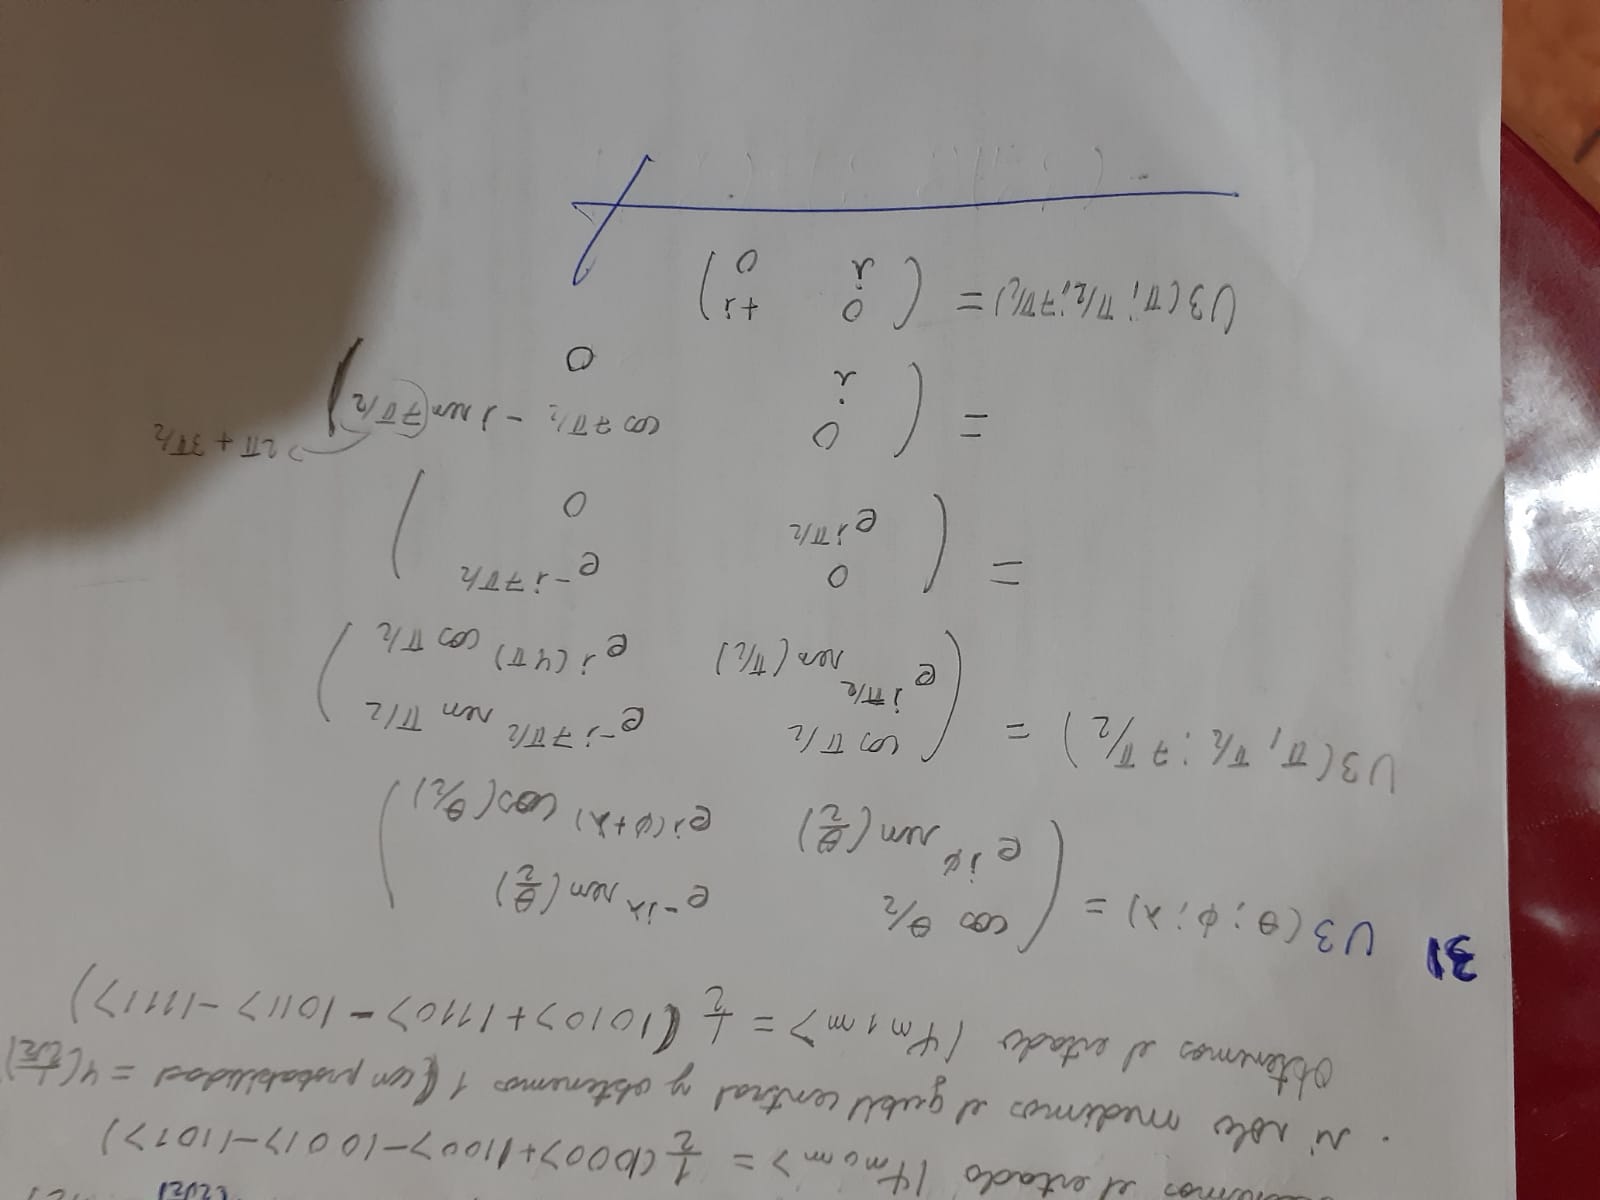 el estado |Ψm0m> = 1/2 (|000>+|100>-|001>-|101>)
. si solo medimos el qubit central y obtenemos 1 (con probabilidad = 4(1/2√2)
obtenemos el estado |Ψm1m> = 1/2 (|010>+|110>-|011>-|111>)
3) U3(θ; ϕ; λ) = ( cos θ/2 e^-iλ sen(θ/2)
e^iϕ sen(θ/2) e^i(ϕ+λ) cos(θ/2) )
U3(π, π/2 ; 7π/2) = ( cos π/2 e^-i7π/2 sen π/2
e^iπ/2 sen(π/2) e^i(4π) cos π/2 )
= ( 0 e^-i7π/2
e^iπ/2 0 )
= ( 0 cos 7π/2 - i sen(7π/2) → 2π + 3π/2
i 0 )
U3(π; π/2; 7π/2) = ( 0 +i
i 0 )